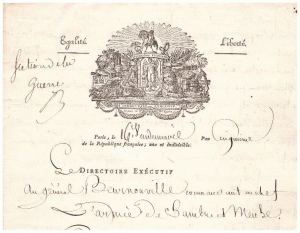 Egalité. Liberté.
Section de la
Guerre
Paris, le 16 Vendemiaire l'an cinquieme
de la République française, une et indivisible.
Le DIRECTOIRE EXÉCUTIF
Au général Beurnonville commandant en chef
L'armée de Sambre et Meuse